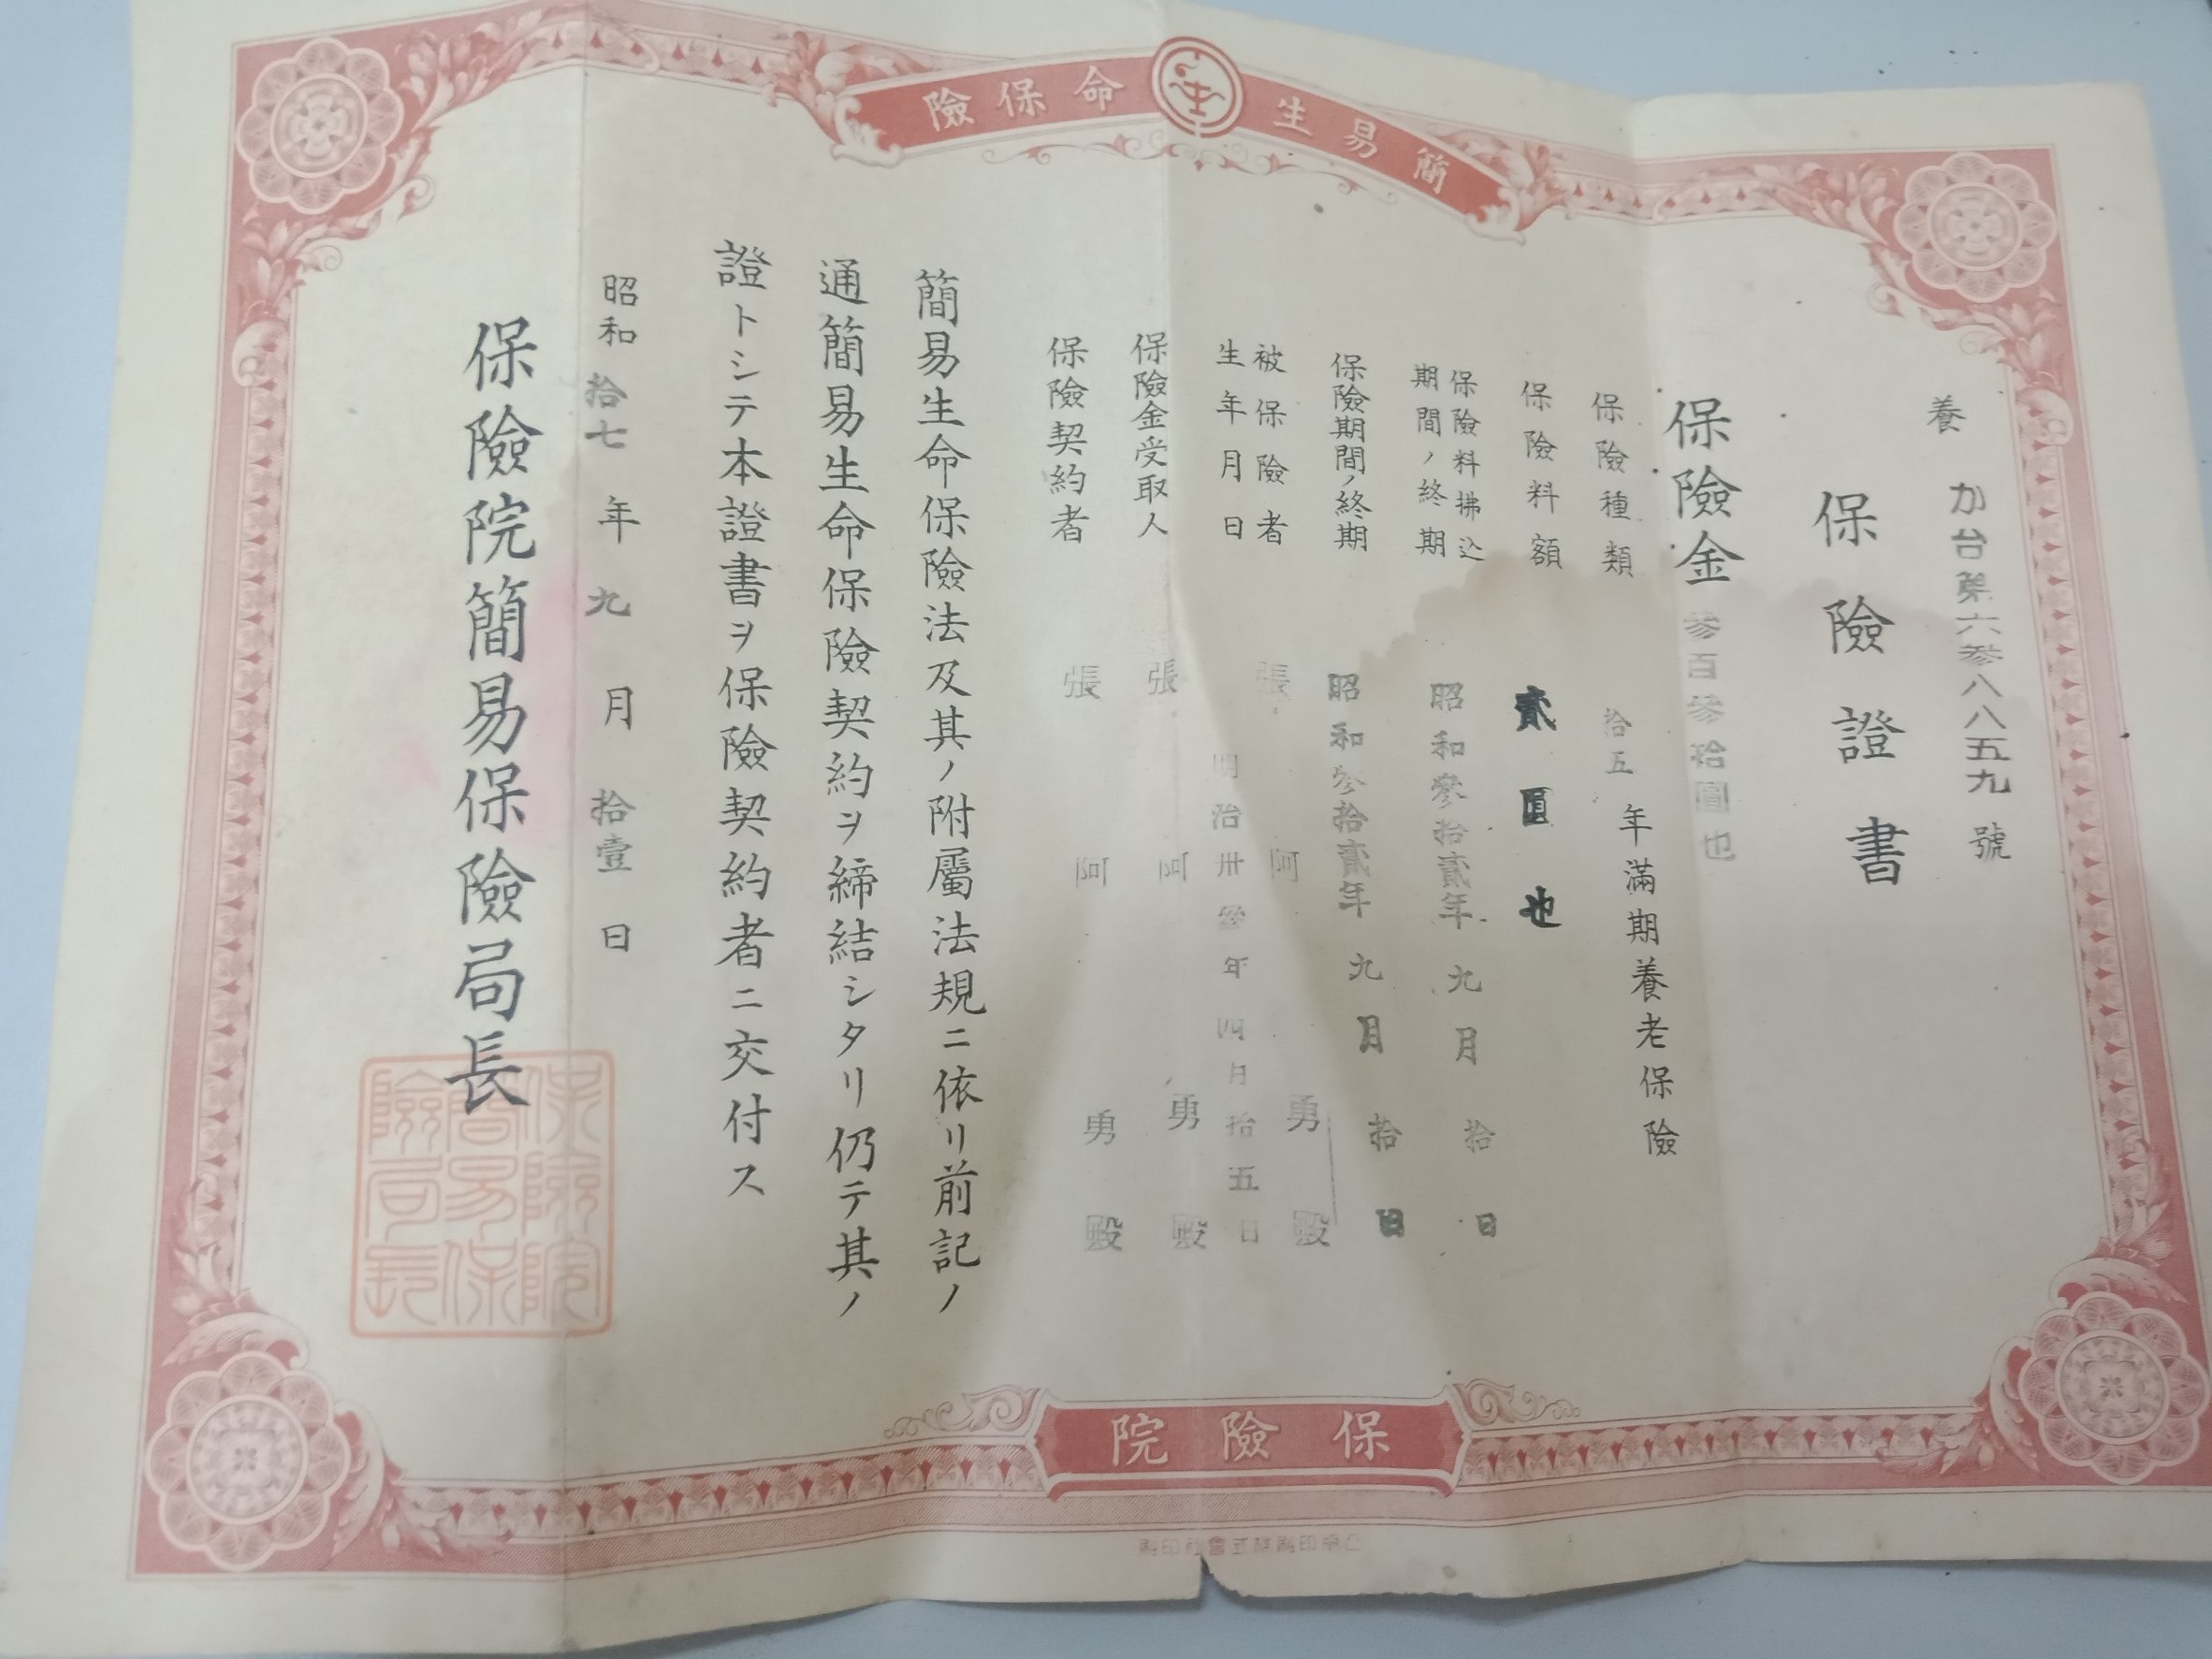 簡易生命保險
養 カ台第六参八八五九號
保險證書
保險金 參百參拾圓也
保險種類 拾五年滿期養老保險
保險料額 貳圓也
保險料拂込期間ノ終期 昭和參拾貳年九月拾日
保險期間ノ終期 昭和參拾貳年九月拾日
被保險者 張阿勇殿
生年月日 明治卅參年四月拾五日
保險金受取人 張阿勇殿
保險契約者 張阿勇殿
簡易生命保險法及其ノ附屬法規ニ依リ前記ノ
通簡易生命保險契約ヲ締結シタリ仍テ其ノ
證トシテ本證書ヲ保險契約者ニ交付ス
昭和拾七年九月拾壹日
保險院簡易保險局長
保險院簡易保險局長
保險院